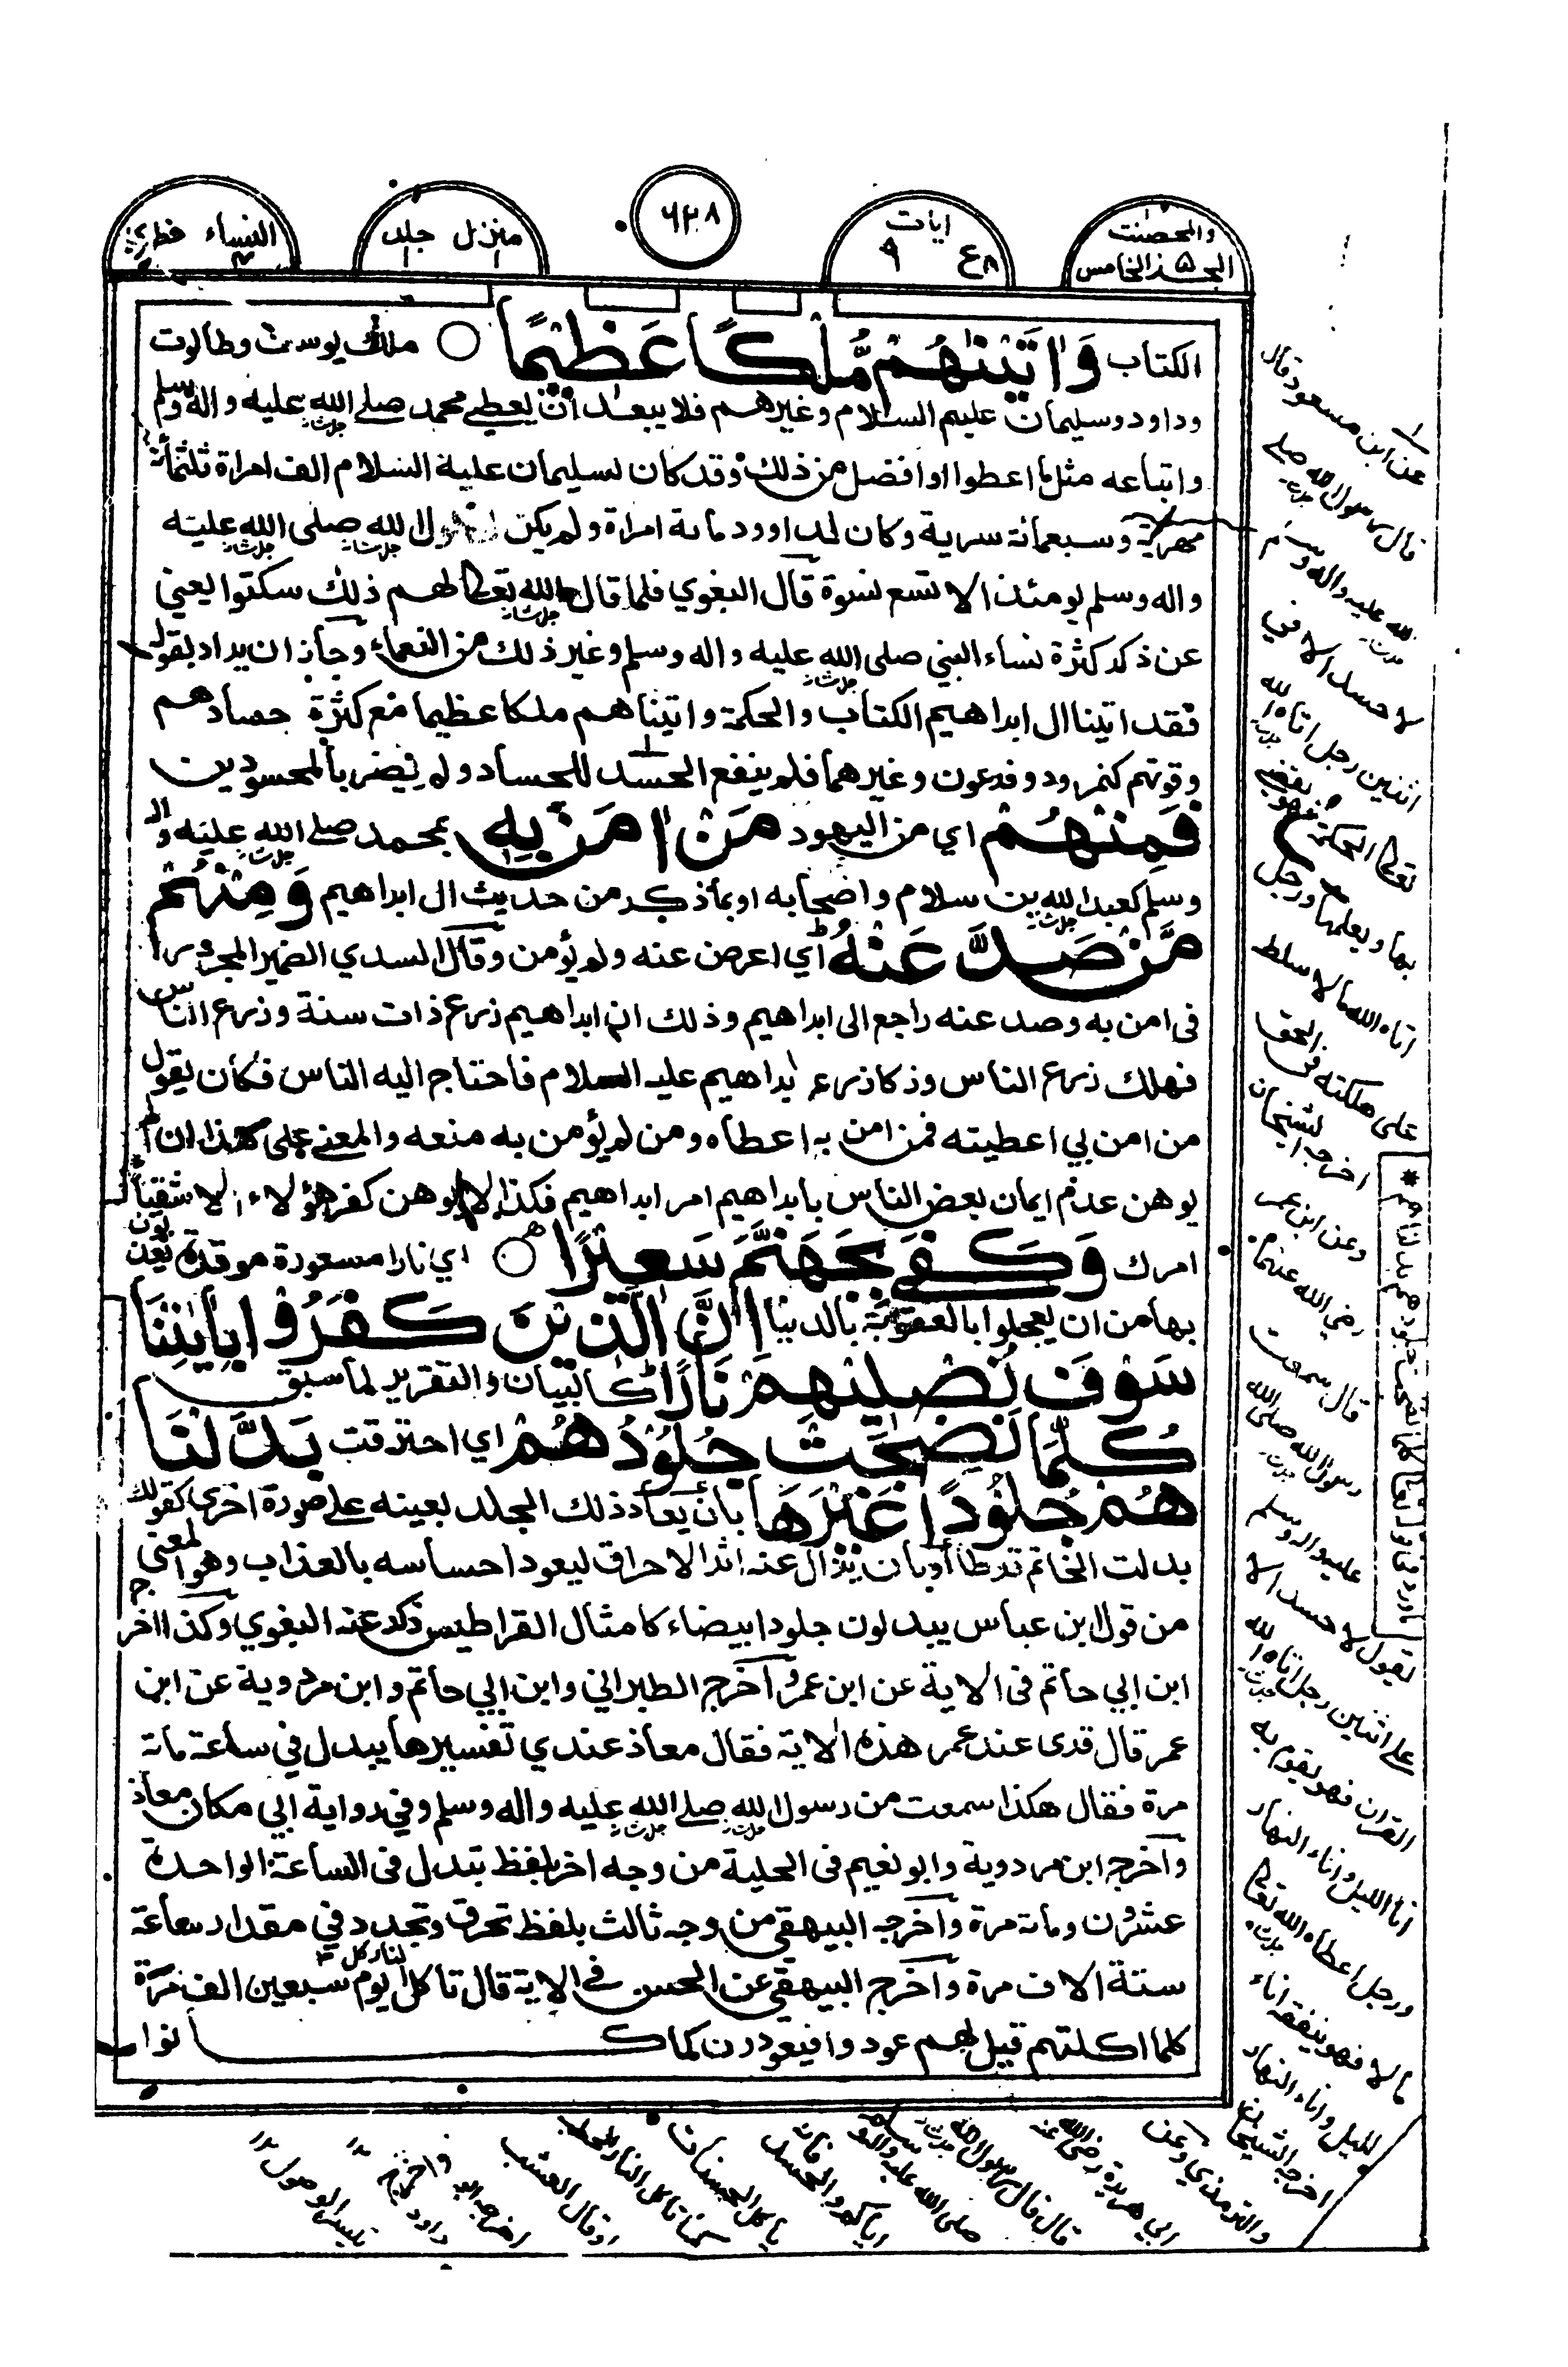 والمحصنت
الجزء الخامس ۵
ايات
۸ع ۹
۶۳۸
منزل جلد
۱ ۱
النساء
۴
الكتاب وَاٰتَيْنٰهُمْ مُّلْكًا عَظِيْمًا ○ ملك يوسف وطالوت
وداود وسليمان عليهم السلام وغيرهم فلا يبعد ان يعطي محمد صلى الله عليه واله وسلم
واتباعه مثل ما اعطوا او افضل من ذلك وقد كان لسليمان عليه السلام الف امراة ثلثمائة
مهرية وسبعمائة سرية وكان لداوود مائة امراة ولم يكن لرسول الله صلى الله عليه
واله وسلم يومئذ الا تسع نسوة قال البغوي فلما قال الله تعالى لهم ذلك سكتوا يعني
عن ذكر كثرة نساء النبي صلى الله عليه واله وسلم وغير ذلك من النعماء وجاز ان يراد بقوله
فقد اتينا ال ابراهيم الكتاب والحكمة واتيناهم ملكا عظيما مع كثرة حسادهم
وقوتهم كنمرود وفرعون وغيرهما فلم ينفع الحسد للحساد ولم يضر بالمحسودين
فَمِنْهُمْ اي من اليهود مَنْ اٰمَنَ بِهٖ بمحمد صلى الله عليه واله
وسلم كعبد الله بن سلام واصحابه او بما ذكر من حديث ال ابراهيم وَمِنْهُمْ
مَّنْ صَدَّ عَنْهُ اي اعرض عنه ولم يؤمن وقال السدي الضمير المجرور
في امن به وصد عنه راجع الى ابراهيم وذلك ان ابراهيم زرع ذات سنة وزرع الناس
فهلك زرع الناس وزكا زرع ابراهيم عليه السلام فاحتاج اليه الناس فكان يقول
من امن بي اعطيته فمن امن به اعطاه ومن لم يؤمن به منعه والمعنى على هذا ان لم
يوهن عدم ايمان بعض الناس بابراهيم امر ابراهيم فكذا لا يوهن كفر هؤلاء الاشقياء
امرك وَكَفٰى بِجَهَنَّمَ سَعِيْرًا ○ اي نارا مسعورة موقدة يعذبون
بها من ان يعجلوا بالعقوبة بالدنيا اِنَّ الَّذِيْنَ كَفَرُوْا بِاٰيٰتِنَا
سَوْفَ نُصْلِيْهِمْ نَارًا كالبيان والتقرير لما سبق
كُلَّمَا نَضِجَتْ جُلُوْدُهُمْ اي احترقت بَدَّلْنَا
هُمْ جُلُوْدًا غَيْرَهَا بان يعاد ذلك الجلد بعينه على صورة اخرى كقولك
بدلت الخاتم قرطا او بان يزال عنه اثر الاحراق ليعود احساسه بالعذاب وهو المعنى
من قول ابن عباس يبدلون جلودا بيضاء كامثال القراطيس ذكر عنه البغوي وكذا اخرج
ابن ابي حاتم في الاية عن ابن عمر واخرج الطبراني وابن ابي حاتم وابن مردوية عن ابن
عمر قال قرى عند عمر هذه الاية فقال معاذ عندي تفسيرها يبدل في ساعة مائة
مرة فقال هكذا سمعت من رسول الله صلى الله عليه واله وسلم وفي رواية ابي مكان معاذ
واخرج ابن مردوية وابو نعيم في الحلية من وجه اخر بلفظ تبدل في الساعة الواحدة
عشرون ومائة مرة واخرج البيهقي من وجه ثالث بلفظ تحرق وتجدد في مقدار ساعة
ستة الاف مرة واخرج البيهقي عن الحسن في الاية قال تاكل النار كل يوم سبعين الف مرة
كلما اكلتهم قيل لهم عودوا فيعودون كما كانوا
عن ابن مسعود قال
قال رسول الله صلى
الله عليه واله وسلم
لا حسد الا في
اثنين رجل اتاه الله
تعالى الحكمة فهو يقضي
بها ويعلمها ورجل
اتاه الله مالا سلط
على هلكته في الحق
اخرجه الشيخان
وعن ابن عمر
رضي الله عنهما
قال سمعت
رسول الله صلى الله
عليه واله وسلم
يقول لا حسد الا
على اثنين رجل اتاه الله
القران فهو يقوم به
انا الليل واناء النهار
ورجل اعطاه الله تعالى
مالا فهو ينفقه اناء
الليل واناء النهار
اخرجه الشيخان
والترمذي وعن
ابي هريرة رضي الله عنه
قال قال رسول الله
صلى الله عليه واله وسلم
اياكم والحسد فان
ياكل الحسنات
كما تاكل النار الحطب
او قال العشب
واخرج